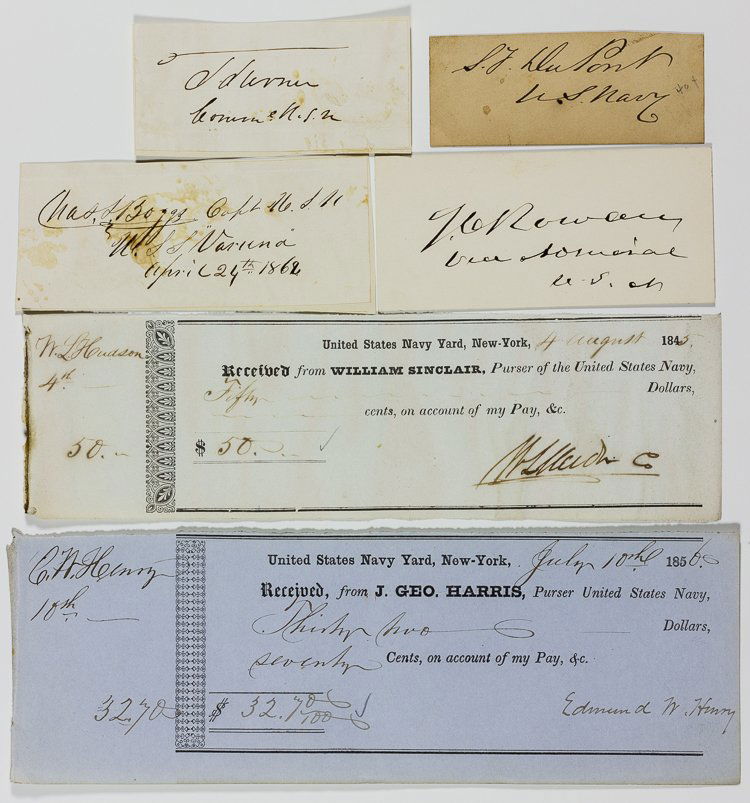 T Turner
Comm e U.S.N
S. F. Du Pont
U. S. Navy
Chas. S. Boggs Capt U. S. N
U. S. S. Varuna
April 24th. 1862
S. C. Rowan
Vice Admiral
U. S. N
W. L. Hudson
4th.
50.
United States Navy Yard, New-York, 4 August 1845.
Received from WILLIAM SINCLAIR, Purser of the United States Navy,
Fifty Dollars,
cents, on account of my Pay, &c.
$ 50.
E. W. Henry
10th
32.70
United States Navy Yard, New-York, July 10th 1858
Received, from J. GEO. HARRIS, Purser United States Navy,
Thirty two Dollars,
seventy Cents, on account of my Pay, &c.
$ 32.70/100
Edmund W. Henry